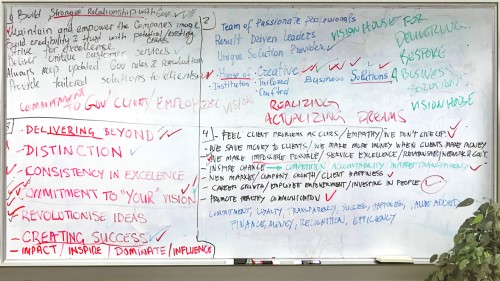 1) Build Stronger Relationship with Gov
Maintain and empower the Companies image
Build credibility & trust with potential/existing
Strive for excellence clients
Deliver unique customer services
Always keep updated Gov rules & regulations
Provide tailored solutions to clients
COMMITMENT TO GOV/ CLIENT/ EMPLOYEE VISION
2 TEAM OF PASSIONATE PROFESSIONALS
RESULT DRIVEN LEADERS
UNIQUE SOLUTION PROVIDERS
VISION HOUSE FOR
DELIVERING
BESPOKE
BUSINESS
SOLUTION
VISION HOUSE
House of Creative Business Solutions
Institution Tailored
Crafted
REALIZING
ACTUALIZING DREAMS
3
- DELIVERING BEYOND
- DISTINCTION
- CONSISTENCY IN EXCELLENCE
- COMMITMENT TO "YOUR VISION"
- REVOLUTIONISE IDEAS
- CREATING SUCCESS
- IMPACT/ INSPIRE / DOMINATE/ INFLUENCE
4
- FEEL CLIENT PROBLEMS AS OURS /EMPATHY/WE DON'T GIVE UP
- WE SAVE MONEY TO CLIENTS/ WE MAKE MORE MONEY WHEN CLIENTS MAKE MONEY
- WE MAKE IMPOSSIBLE POSSIBLE/ SERVICE EXCELLENCE /
- INSPIRE CHANGE COMPETITION ACCOUNTABILITY MARKET TRANSFORMATION
- NEW MARKET/ COMPANY GROWTH/ CLIENT HAPPINESS
- CAREER GROWTH/ EMPLOYEE EMPOWERMENT/ INVESTING IN PEOPLE
- PROMOTE HEALTHY COMMUNICATION
COMMITMENT, LOYALTY, TRANSPARENCY, SUCCESS, HAPPINESS, VALUE ADDED,
FINANCE, MONEY, RECOGNITION, EFFICIENCY